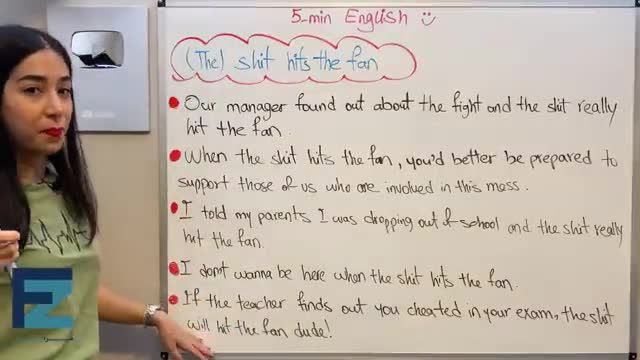 5-min English
(The) shit hits the fan
Our manager found out about the fight and the shit really
hit the fan.
When the shit hits the fan, you'd better be prepared to
support those of us who are involved in this mess.
I told my parents I was dropping out of school and the shit really
hit the fan.
I don't wanna be here when the shit hits the fan.
If the teacher finds out you cheated in your exam, the shit
will hit the fan dude!
EZ